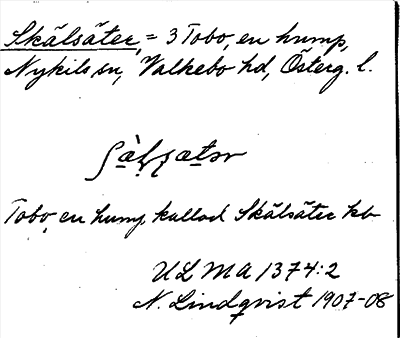 Skälsäter, = 3 Tobo, en hump,
Nykils sn, Valkebo hd, Österg. l.
Tobo, en hump kallad Skälsäter kb
ULMA 1374:2
N. Lindqvist 1907-08